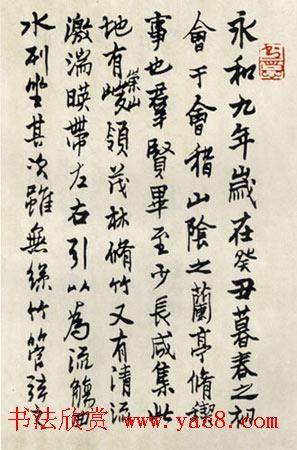 永和九年歲在癸丑暮春之初
會于會稽山陰之蘭亭脩禊
事也羣賢畢至少長咸集此
地有崇山峻嶺茂林脩竹又有清流
激湍暎帶左右引以為流觴曲
水列坐其次雖無絲竹管弦之
书法欣赏 www.yac8.com